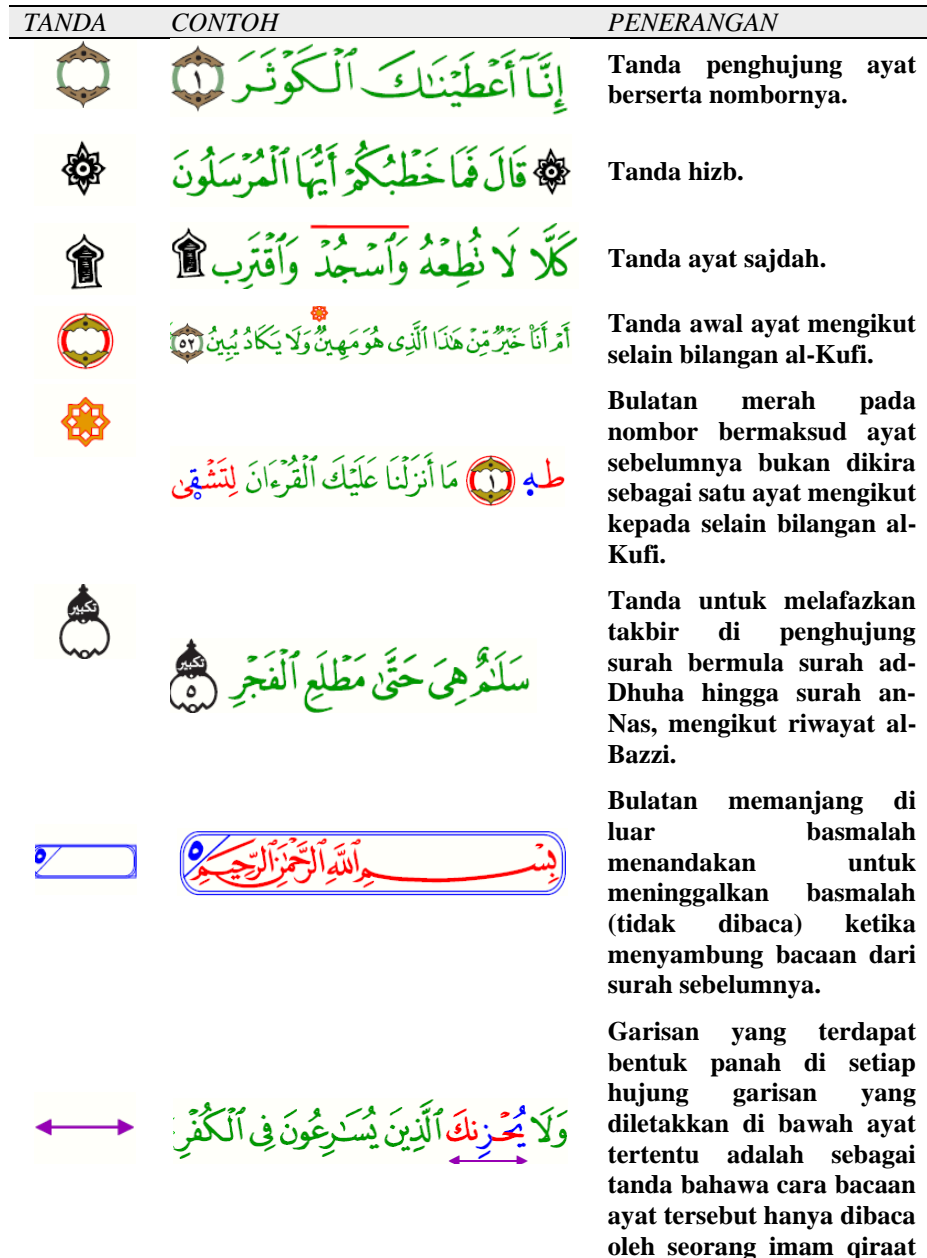 TANDA CONTOH PENERANGAN
إِنَّآ أَعْطَيْنَٰكَ ٱلْكَوْثَرَ ١
Tanda penghujung ayat
berserta nombornya.
قَالَ فَمَا خَطْبُكُمْ أَيُّهَا ٱلْمُرْسَلُونَ
Tanda hizb.
كَلَّا لَا تُطِعْهُ وَٱسْجُدْ وَٱقْتَرِب
Tanda ayat sajdah.
أَمْ أَنَا۠ خَيْرٌ مِّنْ هَٰذَا ٱلَّذِى هُوَ مَهِينٌ وَلَا يَكَادُ يُبِينُ ٥٢
Tanda awal ayat mengikut
selain bilangan al-Kufi.
طه ١ مَا أَنزَلْنَا عَلَيْكَ ٱلْقُرْءَانَ لِتَشْقِىٰ
Bulatan merah pada
nombor bermaksud ayat
sebelumnya bukan dikira
sebagai satu ayat mengikut
kepada selain bilangan al-
Kufi.
تكبير
سَلَٰمٌ هِىَ حَتَّىٰ مَطْلَعِ ٱلْفَجْرِ تكبير ٥
Tanda untuk melafazkan
takbir di penghujung
surah bermula surah ad-
Dhuha hingga surah an-
Nas, mengikut riwayat al-
Bazzi.
٥
بِسْمِ ٱللَّهِ ٱلرَّحْمَٰنِ ٱلرَّحِيمِ ٥
Bulatan memanjang di
luar basmalah
menandakan untuk
meninggalkan basmalah
(tidak dibaca) ketika
menyambung bacaan dari
surah sebelumnya.
وَلَا يُحْزِنكَ ٱلَّذِينَ يُسَٰرِعُونَ فِى ٱلْكُفْرِ
Garisan yang terdapat
bentuk panah di setiap
hujung garisan yang
diletakkan di bawah ayat
tertentu adalah sebagai
tanda bahawa cara bacaan
ayat tersebut hanya dibaca
oleh seorang imam qiraat